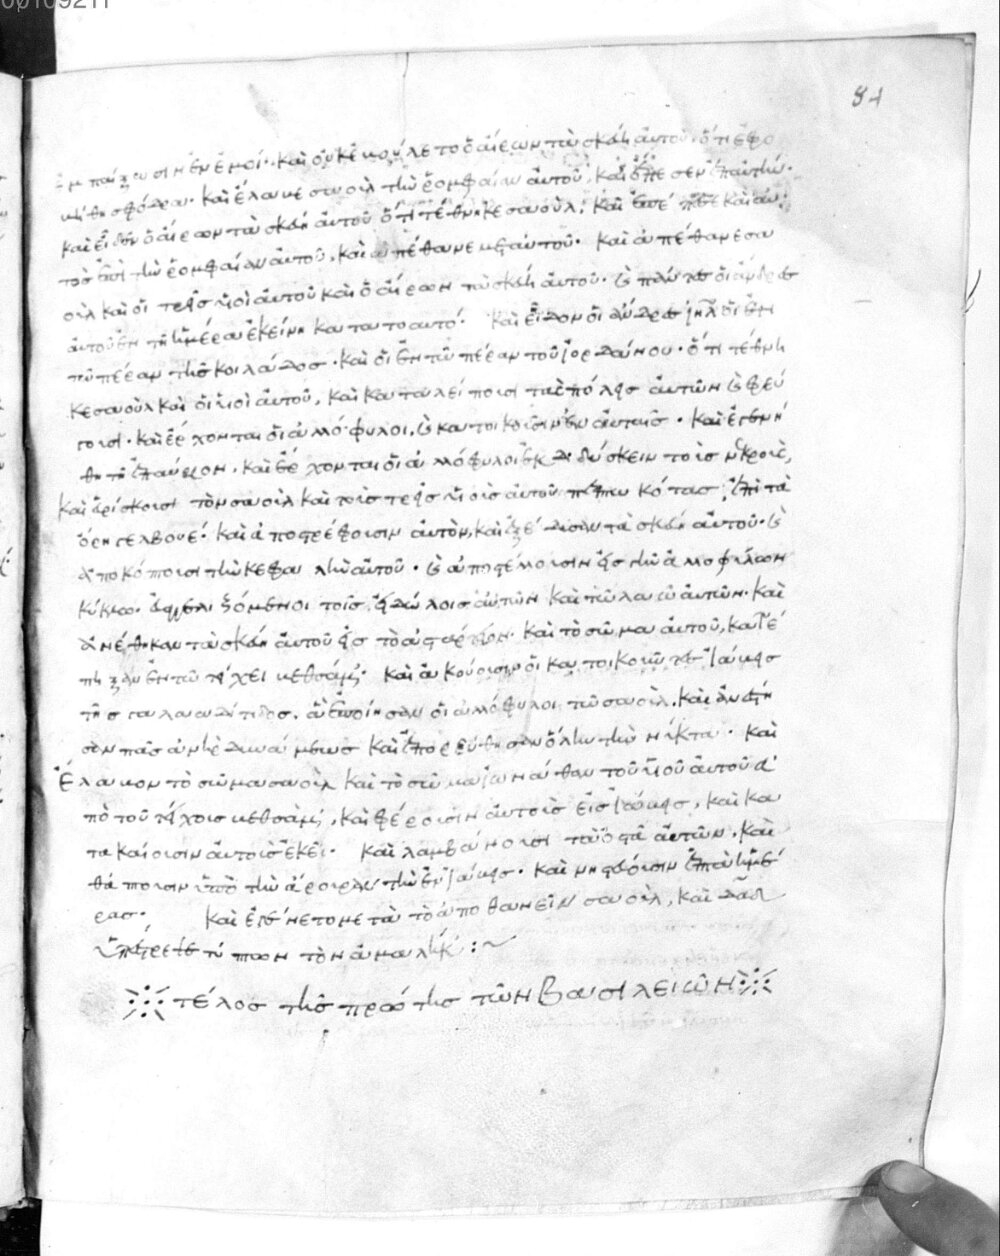 00109211
84
ἐμπαίξουσιν ἐν ἐμοί· καὶ οὐκ ἐβούλετο ὁ αἴρων τὰ σκεύη αὐτοῦ ὅτι ἐφο
βήθη σφόδρα· καὶ ἔλαβε σαοὺλ τὴν ῥομφαίαν αὐτοῦ, καὶ ἔπεσεν ἐπ' αὐτήν·
καὶ εἶδεν ὁ αἴρων τὰ σκεύη αὐτοῦ ὅτι τέθνηκε σαοὺλ, καὶ ἔπεσε καὶ αὐ
τὸς ἐπὶ τὴν ῥομφαίαν αὐτοῦ, καὶ ἀπέθανε μετ' αὐτοῦ· καὶ ἀπέθανε σα
οὺλ καὶ οἱ τρεῖς υἱοὶ αὐτοῦ καὶ ὁ αἴρων τὰ σκεύη αὐτοῦ· καὶ πάντες οἱ ἄνδρες
αὐτοῦ ἐν τῇ ἡμέρα ἐκείνη κατατοαυτό· καὶ εἶδον οἱ ἄνδρες ιηλ οἱ ἐν
τῶ πέραν τῆς κοιλάδος· καὶ οἱ ἐν τῶ πέραν τοῦ ἰορδάνου· ὅτι τέθνη
κε σαοὺλ καὶ οἱ υἱοὶ αὐτοῦ, καὶ καταλείποισι τὰς πόλεις αὐτῶν καὶ φεύ
γοισι· καὶ ἔρχονται οἱ ἀλλόφυλοι, καὶ κατοικοῖσιν ἐν αὐταῖς· καὶ ἐγενή
θη τῇ ἐπαύριον, καὶ ἔρχονται οἱ ἀλλόφυλοι ἐκδιδύσκειν τοὶς νεκροὶς,
καὶ εὑρίσκοισι τὸν σαοὺλ καὶ τοὶς τρεῖς υἱοὶς αὐτοῦ πεπτωκότας, ἐπὶ τὰ
ὄρη γελβουέ· καὶ ἀποστρέφοισιν αὐτὸν, καὶ ἐξέδισαν τὰ σκεύη αὐτοῦ· καὶ
ἀποκόποισι τὴν κεφαλὴν αὐτοῦ· καὶ ἀποστέλλοισιν εἰς γῆν ἀλλοφύλων
κύκλω· εὐαγγελιζόμενοι τοῖς εἰδώλοις αὐτῶν καὶ τῶ λαῶ αὐτῶν· καὶ
ἀνέθηκαν τὰ σκεύη αὐτοῦ εἰς τὸ ἀσταρτεῖον· καὶ τὸ σῶμα αὐτοῦ, κατέ
πηξαν ἐν τῶ τείχει βεθσάμ· καὶ ἀκούοισιν οἱ κατοικοῦντες ἰάβεις
τῆς γαλααδίτιδος, ἃ ἐποίησαν οἱ ἀλλόφυλοι τῶ σαοὺλ, καὶ ἀνέστη
σαν πᾶς ἀνὴρ δυνάμεως καὶ ἐπορεύθησαν ὅλην τὴν νύκτα· καὶ
ἔλαβον τὸ σῶμα σαοὺλ καὶ τὸ σῶμα ἰωνάθαν τοῦ υἱοῦ αὐτοῦ ἀ
πὸ τοῦ τείχοις βεθσὰμ, καὶ φέροισιν αὐτοὶς εἰς ἰάβεις, καὶ κα
τακαίοισιν αὐτοὶς ἐκεῖ· καὶ λαμβάνοισι τὰ ὀστᾶ αὐτῶν, καὶ
θάπτοισιν ὑπὸ τὴν ἄροιραν τὴν ἐν ἰάβεις· καὶ νηστεύοισιν ἑπτὰ ἡμέ
ρας· καὶ ἐγένετο μετὰ τὸ ἀποθανεῖν σαοὺλ, καὶ δαδ
ὑπέστρεψε τύπτων τὸν ἀμαλὴκ :~
τέλος τῆς πρώτης τῶν Βασιλειῶν